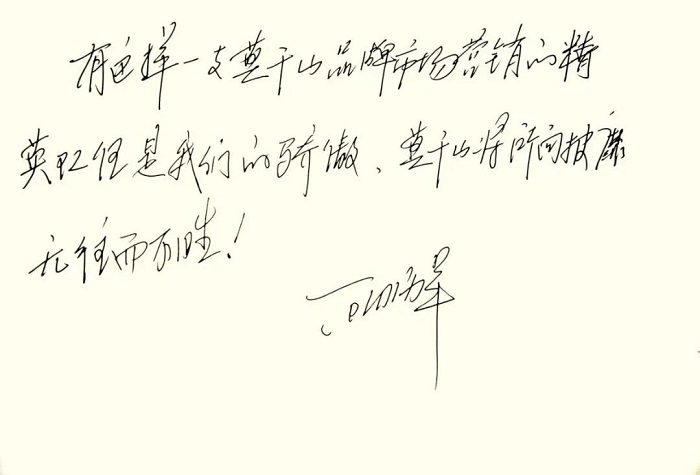 有这样一支莫干山品牌市场营销的精
英団但是我们的骄傲、莫干山将所向披靡
无往而不胜！